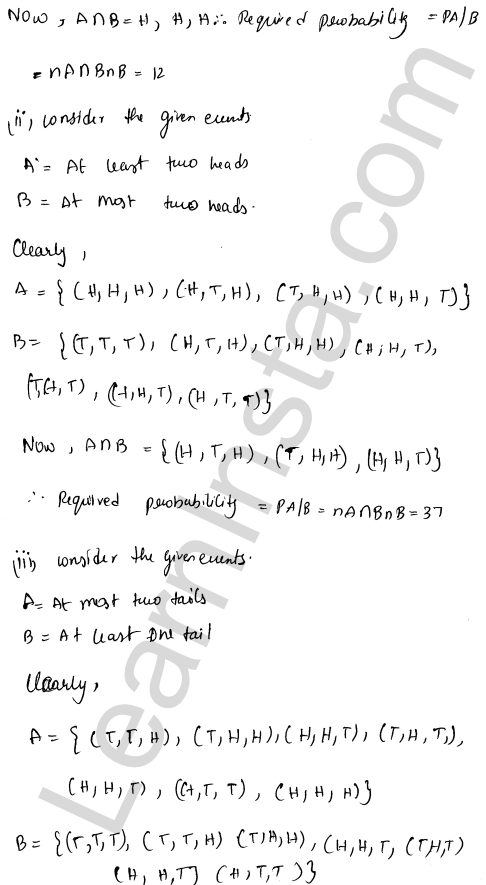 Now, A∩B = H, H, H ∴ Required probability = PA/B
= nA∩BnB = 12
(ii) consider the given events
A = At least two heads
B = At most two heads.
Clearly,
A = { (H, H, H), (H, T, H), (T, H, H), (H, H, T)}
B = {(T, T, T), (H, T, H), (T, H, H), (H, H, T),
(T, H, T), (H, H, T), (H, T, T)}
Now, A∩B = {(H, T, H), (T, H, H), (H, H, T)}
∴ Required probability = PA/B = nA∩BnB = 37
(iii) consider the given events.
A = At most two tails
B = At least one tail
Clearly,
A = { (T, T, H), (T, H, H), (H, H, T), (T, H, T,),
(H, H, T), (H, T, T), (H, H, H)}
B = {(T, T, T), (T, T, H) (T, H, H), (H, H, T, (T H, T)
(H, H, T) (H, T, T)}
LearnInsta.com